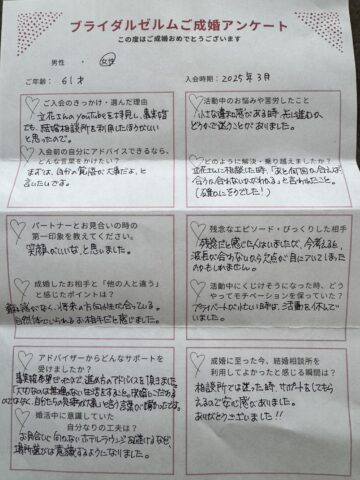 ブライダルゼルムご成婚アンケート
この度はご成婚おめでとうございます
男性 ・ 女性
ご年齢: 61才
入会時期: 2025年3月
ご入会のきっかけ・選んだ理由
立花さんのYouTubeを拝見し、事実婚
でも、結婚相談所を利用したほうがいい
と思ったので。
入会前の自分にアドバイスできるなら、
どんな言葉をかけたい?
まずは、自分の覚悟が大事だよ、と
言いたいです。
パートナーとお見合いの時の
第一印象を教えてください。
笑顔がいいな、と思いました。
成婚したお相手と「他の人と違う」
と感じたポイントは?
将来の方向性が合っている。
自然体でいられるお相手だと感じました。
アドバイザーからどんなサポートを
受けましたか?
事実婚希望だったので、進め方のアドバイスを頂きました。
自分たちの
婚活中に意識していた
自分なりの工夫は?
お見合いに向かないホテルラウンジを避けるなど、
場所選びは意識するようになりました。
活動中のお悩みや苦労したこと
小さな違和感がある時、先に進むか
どうかで迷うことがありました。
どのように解決・乗り越えましたか?
立花さんに相談した時、「あと何回か会えば
合うか、合わないかがわかる」と言われたこと。
(確かにそうでした!)
残念なエピソード・びっくりした相手
残念だと感じた人はいましたが、今考えると、
波長が合わないから欠点が目についてしまった
のかもしれません。
活動中にくじけそうになった時、どう
やってモチベーションを保っていた?
プライベートが忙しい時は、活動を休んで
いました。
成婚に至った今、結婚相談所を
利用してよかったと感じる瞬間は?
相談所では迷った時、サポートをしてもら
えるので安心感がありました。
ありがとうございました!!